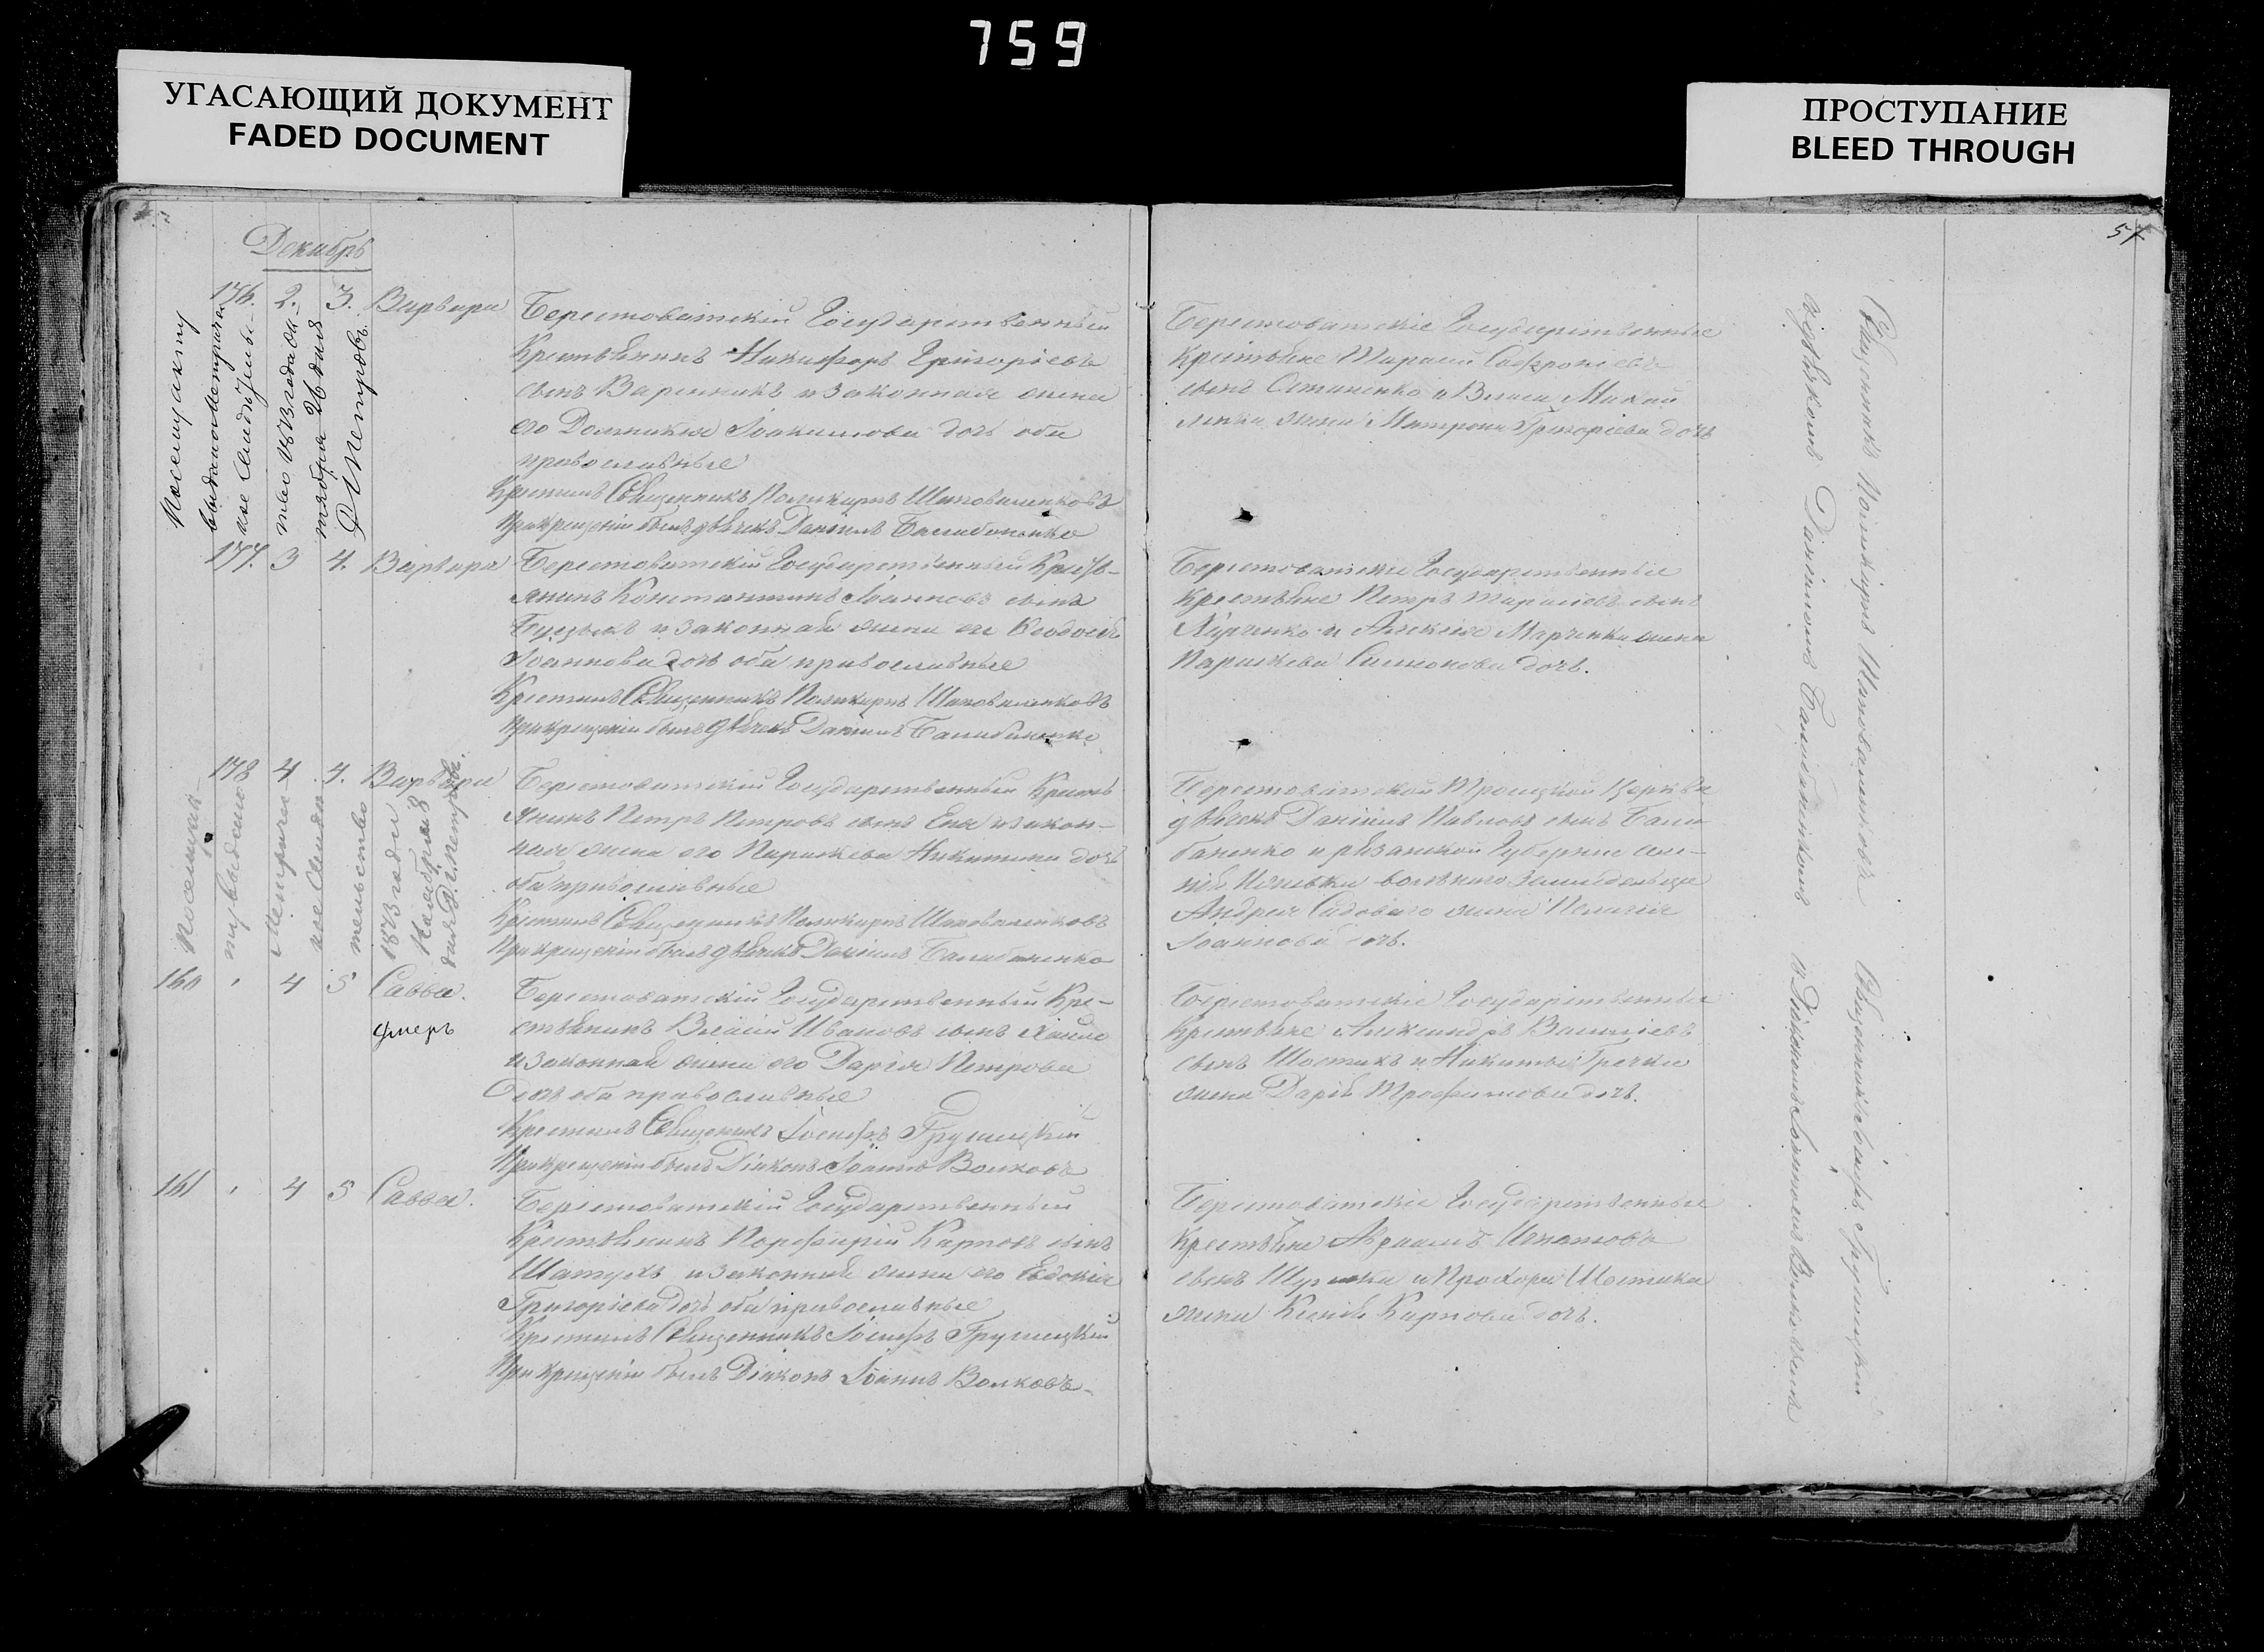 759
УГАСАЮЩИЙ ДОКУМЕНТ
FADED DOCUMENT
ПРОСТУПАНИЕ
BLEED THROUGH
51
Декабрь
176. 2. 3. Варвара
Берестоватскій Государственный
Крестьянинъ Никифоръ Григоріевъ
сынъ Варенникъ и законная жена
его Домникія Іоакимова дочь оба
православные
Крестилъ Священникъ Поликарпъ Шаповаленковъ
При крещеніи былъ дьячекъ Даніилъ Балабаненко
Берестоватскіе Государственные
Крестьяне Тарасій Софроніевъ
сынъ Остапенко и Власа Михай
жена Матрона Григоріева дочь
По сему акту
выдано Метричес
кое Свидѣтель
ство
26 дня
Петровъ.
177. 3 4. Варвара
Берестоватскій Государственный Кресть-
янинъ Константинъ Іоанновъ сынъ
и законная жена его Ѳеодосія
Іоаннова дочь оба православные
Крестилъ Священникъ Поликарпъ Шаповаленковъ
При крещеніи былъ дьячекъ Даніилъ Балабаненко
Берестоватскіе Государственные
Крестьяне Петръ Тарасіевъ сынъ
и Алексія Марченка жена
Параскева Симонова дочь.
178 4 4. Варвара
Берестоватскій Государственный Кресть
янинъ Петръ Петровъ сынъ и закон-
ная жена его Параскева Никитина дочь
оба православные
Крестилъ Священникъ Поликарпъ Шаповаленковъ
При крещеніи былъ дьячекъ Даніилъ Балабаненко
Берестоватской Троицкой Церкви
дьячекъ Даніилъ Павловъ сынъ Бала
баненко и Губерніи
Андрея Садоваго жена Пелагія
Іоаннова дочь.
По сему ак-
ту выдано
Метричес-
кое Свидѣ
тельство
1873 года
Ноября 8
дня Петровъ.
160 4 5 Савва.
умеръ
Берестоватскій Государственный Кре-
стьянинъ Власій Ивановъ сынъ
и законная жена его Дарія Петрова
дочь оба православные
Крестилъ Священникъ Іосифъ Грушецкій
При крещеніи былъ Діаконъ Іоаннъ Волковъ
Берестоватскіе Государственные
Крестьяне Александръ Василіевъ
сынъ Шостакъ и Никиты Гречки
жена Дарія Трофимова дочь.
161 4 5 Савва.
Берестоватскій Государственный
Крестьянинъ Порфирій Карповъ сынъ
и законная жена его Евдокія
Григоріева дочь оба православные
Крестилъ Священникъ Іосифъ Грушецкій
При крещеніи былъ Діаконъ Іоаннъ Волковъ
Берестоватскіе Государственные
Крестьяне Авраамъ Игнатовъ
сынъ и Прохора Шостака
жена Ксенія Карпова дочь.
Священникъ Поликарпъ Шаповаленковъ
съ дьячкомъ Даніиломъ Балабаненкомъ
Священникъ Іосифъ Грушецкій
съ Діакономъ Іоанномъ Волковымъ